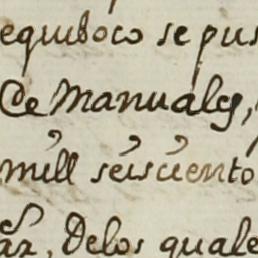 equiboco se pus
De Manuales,
mill seisciento
az, Delos quale